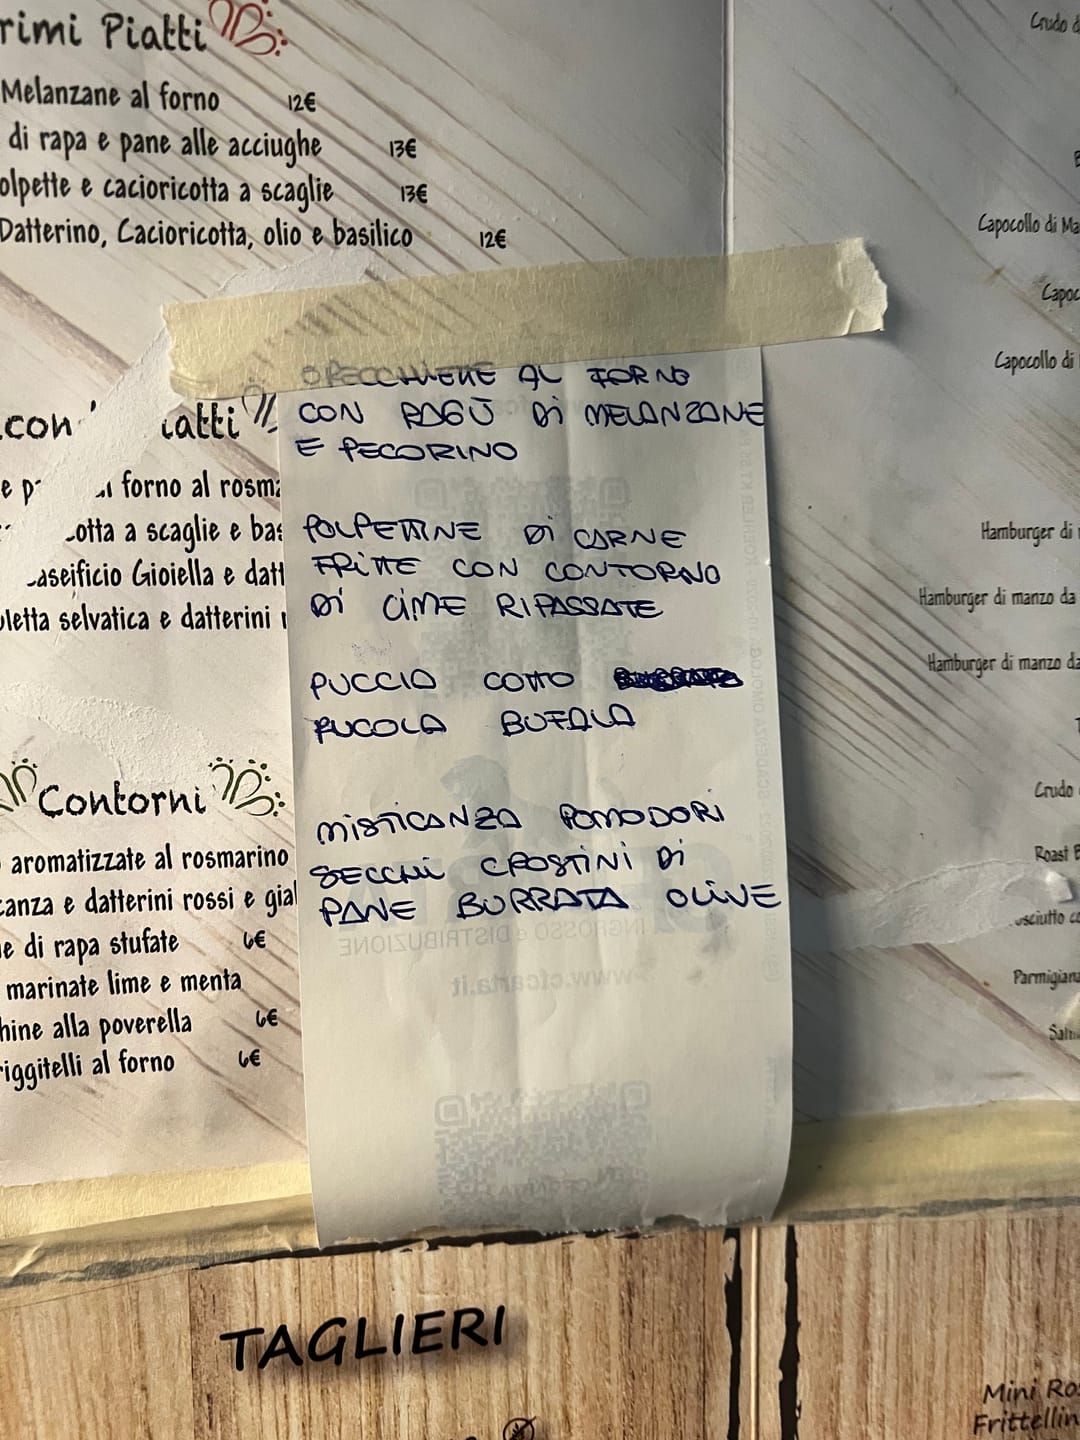 rimi Piatti
Melanzane al forno 12€
di rapa e pane alle acciughe 13€
olpette e cacioricotta a scaglie 13€
Datterino, Cacioricotta, olio e basilico 12€
con iatti
forno al rosma
otta a scaglie e bas
aseificio Gioiella e datt
letta selvatica e datterini
Contorni
aromatizzate al rosmarino
canza e datterini rossi e gial
e di rapa stufate 6€
marinate lime e menta
hine alla poverella 6€
riggitelli al forno 6€
ORECCHIETTE AL FORNO
CON RAGÙ Di MELANZANE
E PECORINO
POLPETTINE Di CARNE
FRITTE CON CONTORNO
Di CIME RIPASSATE
PUCCIA COTTO
RUCOLA BUFALA
MISTICANZA POMODORI
SECCHi CROSTINi Di
PANE BURRATA OLIVE
INGROSSO e DISTRIBUZIONE
www.cfcarta.it
Crudo d
Capocollo di Ma
Capoc
Capocollo di
Hamburger di
Hamburger di manzo da
Hamburger di manzo da
Crudo
Roast B
osciutto co
Parmigiana
TAGLIERI
Mini Ros
Frittellin